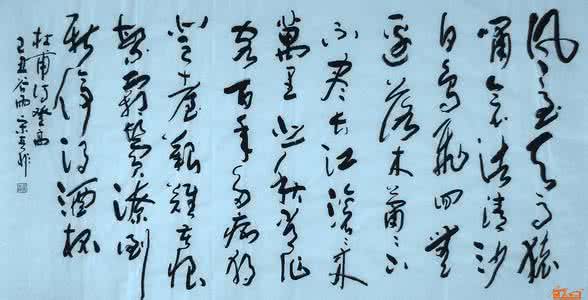 風急天高猿
嘯哀渚清沙
白鳥飛回無
邊落木蕭々下
不盡長江滾々來
萬里悲秋常作
客百年多病獨
登臺艱難苦恨
繁霜鬢潦倒
新停濁酒杯
杜甫诗登高
己丑谷雨